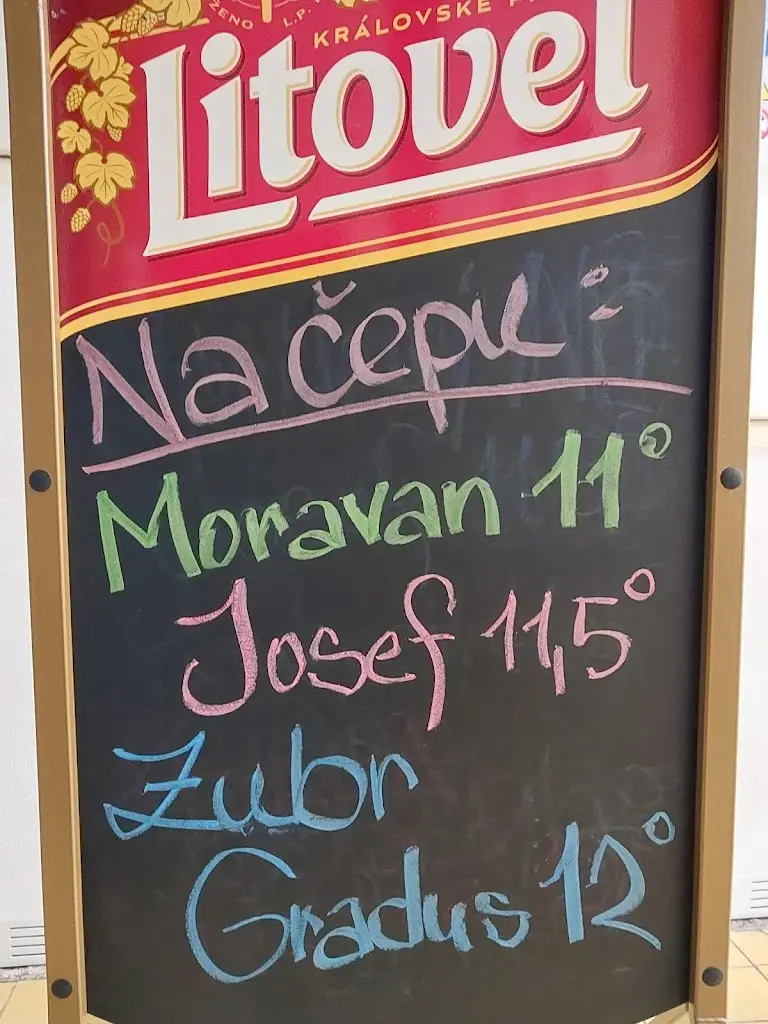 ŽENO L.P.
KRÁLOVSKÉ
Litovel
Na čepu:
Moravan 11°
Josef 11,5°
Zubr
Gradus 12°